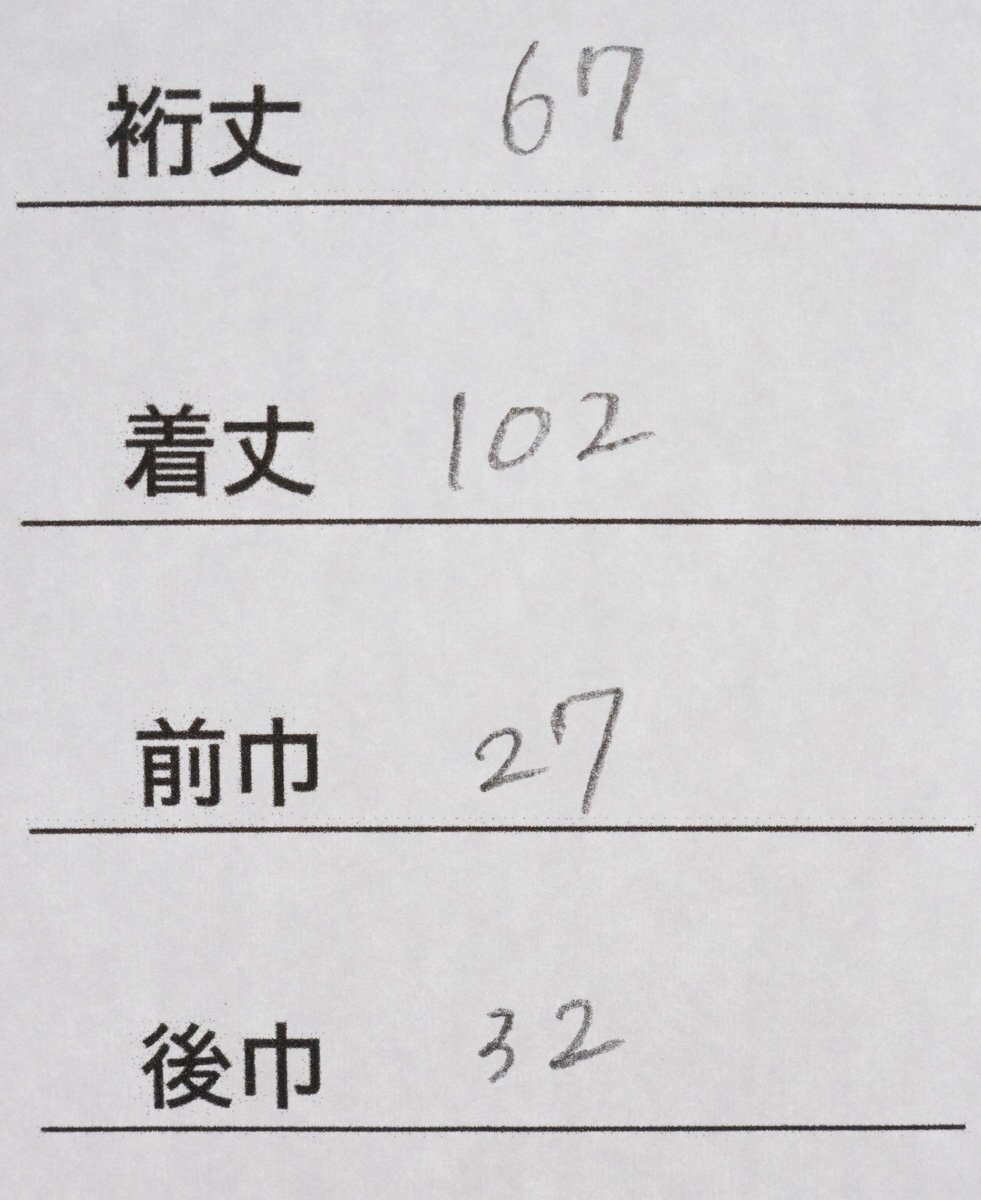 裄丈 67
着丈 102
前巾 27
後巾 32